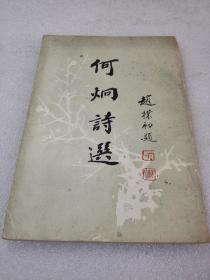 何炯詩選
趙樸初題